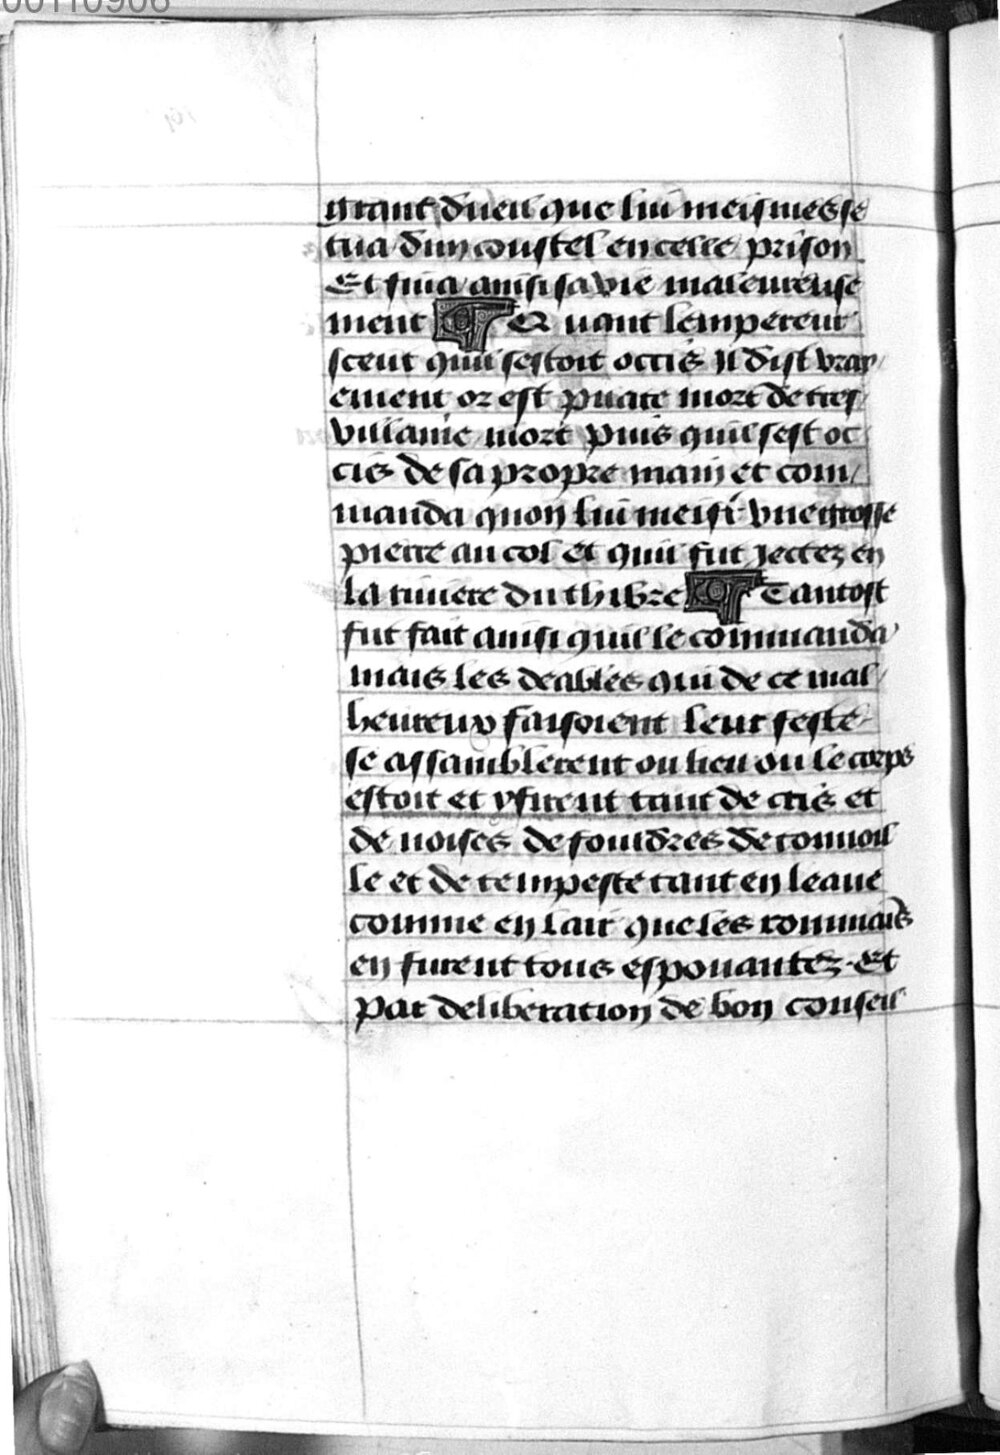 00110906
grant dueil que lui meismes se
tua dun coustel en celle prison
Et fina ainsi sa vie maleureuse
ment Quant lempereur
sceut quil sestoit occis Il dist vray
ement or est pilate mort de tres
villaine mort puis quil sest oc
cis de sa propre main et com
manda quon lui meist vne grosse
pierre au col et quil fut Jectez en
la riuiere du thibre Tantost
fut fait ainsi quil le commanda
mais les deables qui de ce mal
heureux faisoient leur feste
se assamblerent ou lieu ou le corps
estoit et y firent tant de cris et
de noises de fouldres de tonnoil
le et de tempeste tant en leaue
comme en lair que les rommains
en furent tous espouantez. Et
par deliberation de bon conseil